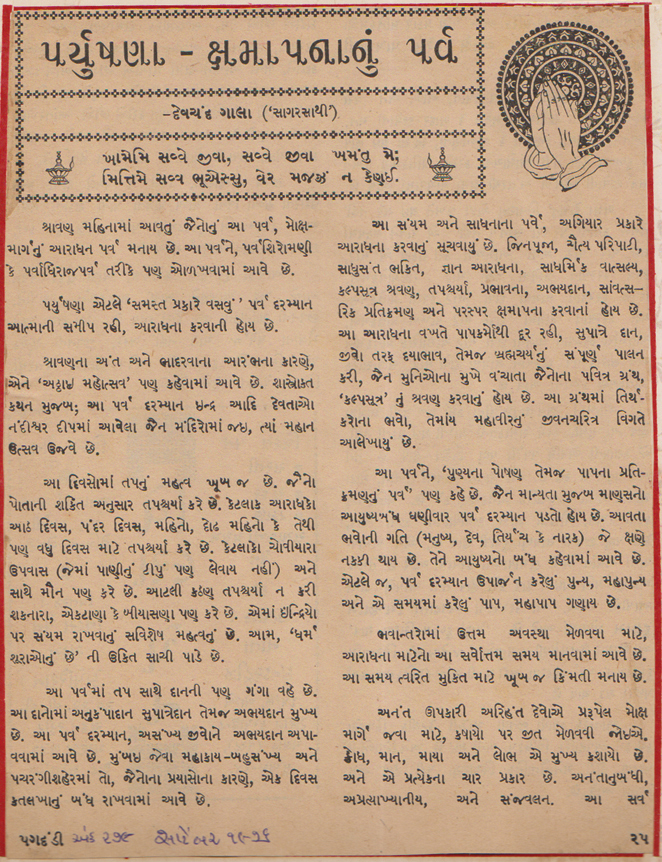 પર્યુષણા - ક્ષમાપનાનું પર્વ
-દેવચંદ્ર ગાલા ('સાગરસાથી')
ખામેમિ સવ્વે જીવા, સવ્વે જીવા ખમંતુ મે;
મિત્તિમે સવ્વ ભૂએસ્સુ, વેર મજઝં ન કેણુઈ.
શ્રાવણ મહિનામાં આવતું જૈનોનું આ પર્વ, મોક્ષ-
માર્ગનું આરાધન પર્વ મનાય છે. આ પર્વને, પર્વશિરોમણી
કે પર્વાધિરાજપર્વ તરીકે પણ ઓળખવામાં આવે છે.
પર્યુષણા એટલે ‘સમસ્ત પ્રકારે વસવું’ પર્વ દરમ્યાન
આત્માની સમીપ રહી, આરાધના કરવાની હોય છે.
શ્રાવણના અંત અને ભાદરવાના આરંભના કારણે,
એને ‘અઠ્ઠાઇ મહોત્સવ’ પણ કહેવામાં આવે છે. શાસ્ત્રોકત
કથન મુજબ; આ પર્વ દરમ્યાન ઇન્દ્ર આદિ દેવતાઓ
નંદીશ્વર દીપમાં આવેલા જૈન મંદિરોમાં જઇ, ત્યાં મહાન
ઉત્સવ ઉજવે છે.
આ દિવસોમાં તપનું મહત્વ ખૂબ જ છે. જૈનો
પોતાની શકિત અનુસાર તપશ્ચર્યા કરે છે. કેટલાક આરાધકો
આઠ દિવસ, પંદર દિવસ, મહિનો, દોઢ મહિનો કે તેથી
પણ વધુ દિવસ માટે તપશ્ચર્યા કરે છે. કેટલાકો ચોવીયારા
ઉપવાસ (જેમાં પાણીનું ટીપું પણ લેવાય નહીં) અને
સાથે મૌન પણ કરે છે. આટલી કઠણ તપશ્ચર્યા ન કરી
શકનારા, એકટાણા કે બીયાસણા પણ કરે છે. એમાં ઇન્દ્રિયો
પર સંયમ રાખવાનું સવિશેષ મહત્વનું છે. આમ, ‘ધર્મ
શૂરાઓનું છે’ ની ઉકિત સાચી પાડે છે.
આ પર્વમાં તપ સાથે દાનની પણ ગંગા વહે છે.
આ દાનોમાં અનુકંપાદાન સુપાત્રેદાન તેમજ અભયદાન મુખ્ય
છે. આ પર્વ દરમ્યાન, અસંખ્ય જીવોને અભયદાન અપા-
વવામાં આવે છે. મુંબઇ જેવા મહાકાય-બહુસંખ્ય અને
પચરંગીશહેરમાં તો, જૈનોના પ્રયાસોના કારણે, એક દિવસ
કતલખાનું બંધ રાખવામાં આવે છે.
આ સંયમ અને સાધનાના પર્વે, અગિયાર પ્રકારે
આરાધના કરવાનું સૂચવાયું છે. જિનપૂજા, ચૈત્ય પરિપાટી,
સાધુસંત ભકિત, જ્ઞાન આરાધના, સાધર્મિક વાત્સલ્ય,
કલ્પસૂત્ર શ્રવણ, તપશ્ચર્યા, પ્રભાવના, અભયદાન, સાંવત્સ-
રિક પ્રતિક્રમણ અને પરસ્પર ક્ષમાપના કરવાનાં હોય છે.
આ આરાધના વખતે પાપકર્મોથી દૂર રહી, સુપાત્રે દાન,
જીવો તરફ દયાભાવ, તેમજ બ્રહ્મચર્યનું સંપૂર્ણ પાલન
કરી, જૈન મુનિઓના મુખે વંચાતા જૈનોના પવિત્ર ગ્રંથ,
‘કલ્પસૂત્ર’ નું શ્રવણ કરવાનું હોય છે. આ ગ્રંથમાં તિર્થં-
કરોના ભવો, તેમાંય મહાવીરનું જીવનચરિત્ર વિગતે
આલેખાયું છે.
આ પર્વને, ‘પુણ્યના પોષણ તેમજ પાપના પ્રતિ-
ક્રમણનું પર્વ’ પણ કહે છે. જૈન માન્યતા મુજબ માણસનો
આયુષ્યબંધ ઘણીવાર પર્વ દરમ્યાન પડતો હોય છે. આવતા
ભવોની ગતિ (મનુષ્ય, દેવ, તિર્યંચ કે નારક) જે ક્ષણે
નકકી થાય છે. તેને આયુષ્યનો બંધ કહેવામાં આવે છે.
એટલે જ, પર્વ દરમ્યાન ઉપાર્જન કરેલું પુન્ય, મહાપુન્ય
અને એ સમયમાં કરેલું પાપ, મહાપાપ ગણાય છે.
ભવાન્તરોમાં ઉત્તમ અવસ્થા મેળવવા માટે,
આરાધના માટેનો આ સર્વોત્તમ સમય માનવામાં આવે છે.
આ સમય ત્વરિત મુકિત માટે ખૂબ જ કિંમતી મનાય છે.
અનંત ઊપકારી અરિહંત દેવોએ પ્રરૂપેલ મોક્ષ
માર્ગે જવા માટે, કષાયો પર જીત મેળવવી જોઇએ.
ક્રોધ, માન, માયા અને લોભ એ મુખ્ય કશાયો છે.
અને એ પ્રત્યેકના ચાર પ્રકાર છે. અનંતાનુબંધી,
અપ્રત્યાખ્યાનીય, અને સંજવલન. આ સર્વ
પગદંડી અંક ૨૭૯ સપ્ટેંબર ૧૯૭૬
૨૫